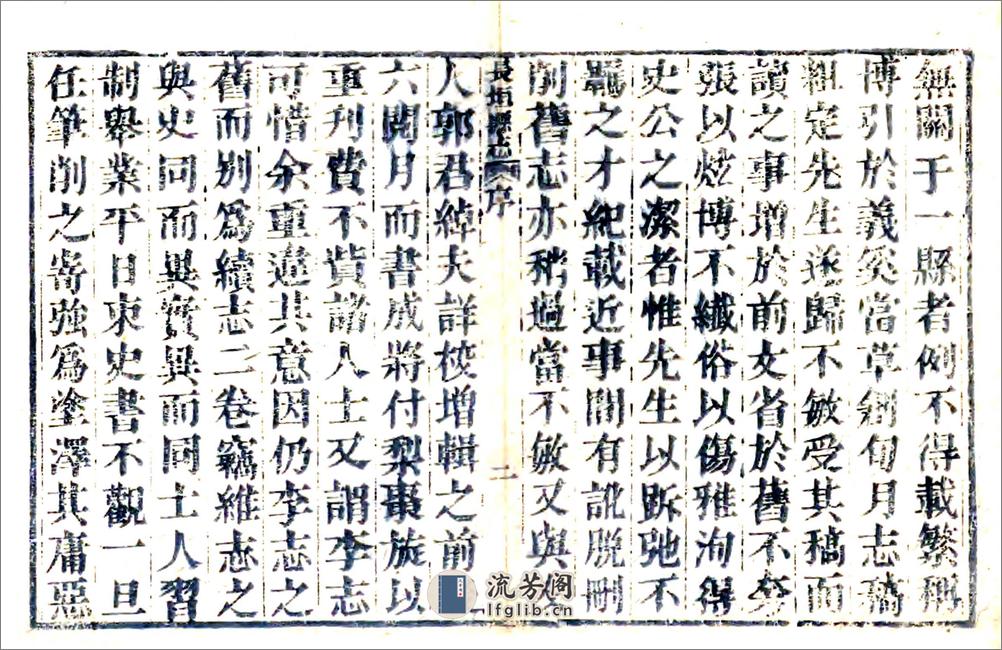 無關于一縣者例不得載繁稱
博引於義奚當草創旬月志稿
粗定先生遂歸不敏受其稿而
讀之事增於前文省於舊不夸
張以炫博不纖俗以傷雅洵得
史公之潔者惟先生以跅弛不
羈之才紀載近事間有訛脫刪
削舊志亦稍過當不敏又與
長垣縣志 序
二
人郭君綽夫詳校增輯之前
六閱月而書成將付梨棗旋以
重刊費不貲諸人士又謂李志
可惜余重違其意因仍李志之
舊而別為續志二卷竊維志之
與史同而異實異而同士人習
制舉業平日束史書不觀一旦
任筆削之寄強為塗澤其庸惡
流芳阁
lfglib.cn